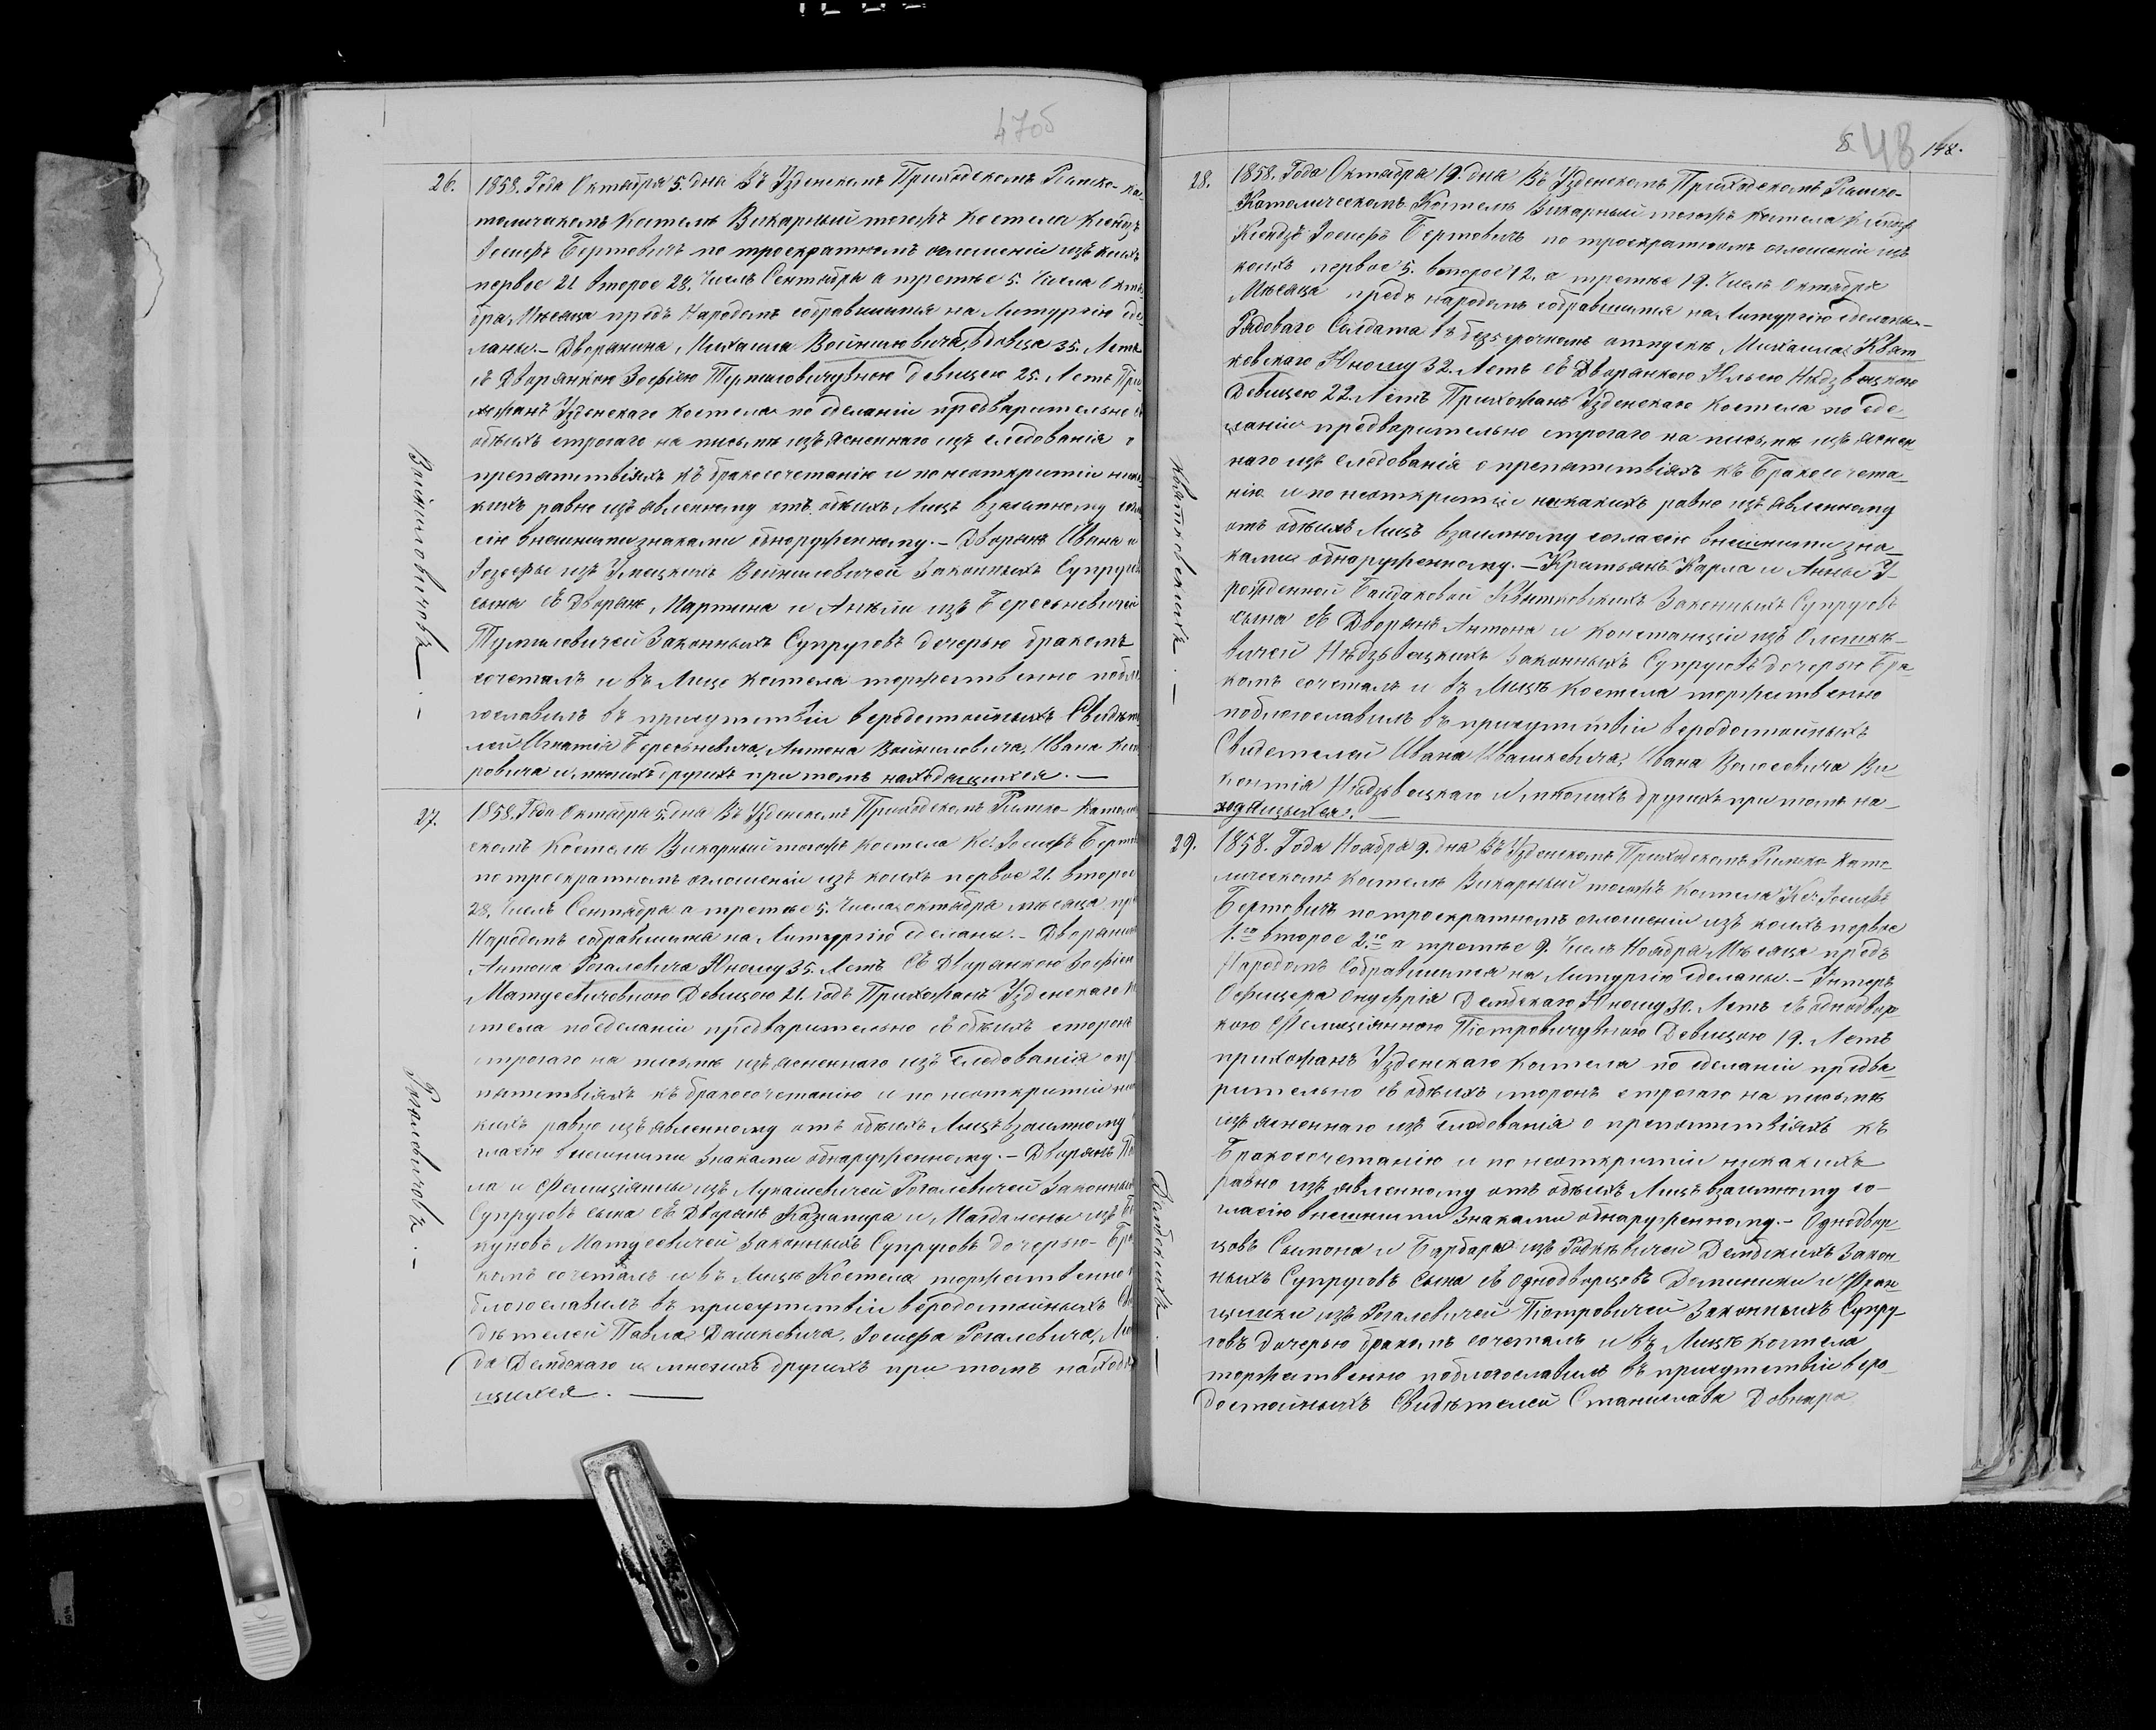 47об
26.
1858. Года Октября 5. дня Въ Узденскомъ Приходскомъ Римско-ка-
толическомъ Костелѣ Викарный тогожъ Костела Ксендзъ
Іосифъ Бертовичъ по троекратномъ оглошеніи изъ коихъ
первое 21 второе 28. Числъ Сентября а третье 5. Числа Октя-
бра Мѣсяца предъ Народомъ собравшимся на Литургію сдѣ-
ланы.- Дворянина, Михаила Войниловича, вдовца 35. Летъ
съ Дворянкою Зофіею Девицею 25. Летъ При-
хожанъ Узденскаго Костела по сделаніи предварительно съ
обѣихъ строгаго на письмѣ изъясненнаго изъ следованія о
препятствіяхъ къ бракосочетанію и по неоткрытіи ника-
кихъ равно изъявленному отъ обѣихъ Лицъ взаимному согла-
сію внешними знаками обнаруженному.- Дворянъ Ивана и
Іозефы изъ Войниловичей Законныхъ Супруговъ
сына съ Дворянъ Мартина и Анели изъ Бересневичей
Законныхъ Супруговъ дочерью бракомъ
сочеталъ и въ Лице Костела торжественно побла-
гославилъ въ присутствіи веродостойныхъ Свидѣте-
лей Игнатія Бересневича, Антона Войниловича, Ивана
ровича и многихъ другихъ при томъ находящихся. —
Войниловичовъ . -
27.
1858. Года Октября 5. дня Въ Узденскомъ Приходскомъ Римско-Католич
скомъ Костелѣ Викарный тогожъ Костела Кс. Іосифъ Бертов
по троекратномъ оглошеніи изъ коихъ первое 21. второе
28. Числъ Сентября а третье 5. Числа октября мѣсяца пр
Народомъ собравшимся на Литургію сделаны.- Дворянина
Антона Рогалевича Юношу 35. Летъ Съ Дворянкою Зофіею
Матусевичовною Девицою 21. годъ Прихожанъ Узденскаго К
стела по сделаніи предварительно съ обѣихъ сторонъ
строгаго на письмѣ изъясненнаго изъ следованія о пр
пятствіяхъ къ бракосочетанію и по неоткрытіи ни
кихъ равно изъявленному отъ обѣихъ Лицъ взаимному
гласію внешними Знаками обнаруженному.- Дворянъ
ла и Фелиціянны изъ Лукашевичей Рогалевичей Законныхъ
Супруговъ сына съ Дворянъ Казимира и Магдалены изъ
куновъ Матусевичей Законныхъ Супруговъ дочерью- Бра
комъ сочеталъ и въ Лицѣ Костела торжественно
благославилъ въ присутствіи веродостойныхъ Сви
дѣтелей Павла Дашкевича, Іосифа Рогалевича,
да Дембскаго и многихъ другихъ при томъ находя
щихся. —
Рогалевичовъ . -
48
148.
28.
1858. Года Октября 19. дня Въ Узденскомъ Приходскомъ Римско-
Католическомъ Костелѣ Викарный тогожъ Костела
Ксендзъ Іосифъ Бертовичъ по троекратномъ оглошеніи изъ
коихъ первое 5. второе 12. а третье 19. Числъ Октября
Мѣсяца предъ народомъ собравшимся на Литургію сделаны-
Рядоваго Солдата въ безсрочномъ отпускѣ Михаила Квят-
ковскаго Юношу 32. Летъ съ Дворянкою Юліею Нѣдзвецкою
Девицею 22. Летъ Прихожанъ Узденскаго Костела по сде-
ланіи предварительно строгаго на письмѣ изъяснен
наго изъ следованія о препятствіяхъ къ Бракосочета-
нію и по неоткрытіи никакихъ равно изъявленному
отъ обѣихъ Лицъ взаимному согласію внешними зна-
ками обнаруженному.- Кристьянъ Карла и Анны У-
рожденной Байдаковой Квятковскихъ Законныхъ Супруговъ
сына съ Дворянъ Антона и Констанціи изъ
вичей Нѣдзвецкихъ Законныхъ Супруговъ дочерью Бра-
комъ сочеталъ и въ Лицѣ Костела торжественно
поблогославилъ въ присутствіи веродостойныхъ
Свидетелей Ивана Ивашкевича, Ивана Волосевича Ви-
кентія Нѣдзвецкаго и многихъ другихъ при томъ на-
ходящыхся. —
Квятковскихъ . -
29.
1858. Года Ноября 9. дня Въ Узденскомъ Приходскомъ Римско-Като-
лическомъ Костелѣ Викарный тогожъ Костела Кс. Іосифъ
Бертовичъ по троекратномъ оглошеніи изъ коихъ первое
1.го второе 2.го а третье 9. Числъ Ноября Мѣсяца предъ
Народомъ Собравшимся на Литургію сделаны.- Унтеръ
Офицера Онуфрія Дембскаго Юношу 30. Летъ съ однодвор
кою Фелиціянною Піотровичувною Девицою 19. Летъ
прихожанъ Узденскаго Костела по сделаніи предва-
рительно съ обѣихъ сторонъ строгаго на письмѣ
изъясненнаго изъ следованія о препятствіяхъ къ
Бракосочетанію и по неоткрытіи никакихъ
равно изъявленному отъ обѣихъ Лицъ взаимному со-
гласію внешними Знаками обнаруженному.- Однодвор-
цовъ Сымона и Барбары изъ Радкевичей Дембскихъ Закон-
ныхъ Супруговъ Сына съ Однодворцовъ Доминика и Фран-
цишки изъ Рогалевичей Піотровичей Законныхъ Супру-
говъ дочерью бракомъ сочеталъ и въ Лицѣ Костела
торжественно поблогославилъ въ присутствіи веро-
достойныхъ Свидѣтелей Станислава Довнара
Дембскихъ . -